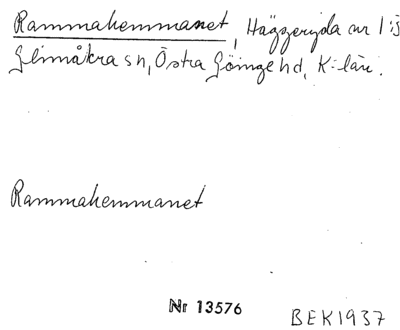 Rammahemmanet, Häggeryda nr 1:5
Glimåkra sn, Östra Göinge hd, K-län.
Rammahemmanet
Nr 13576
BEK1937